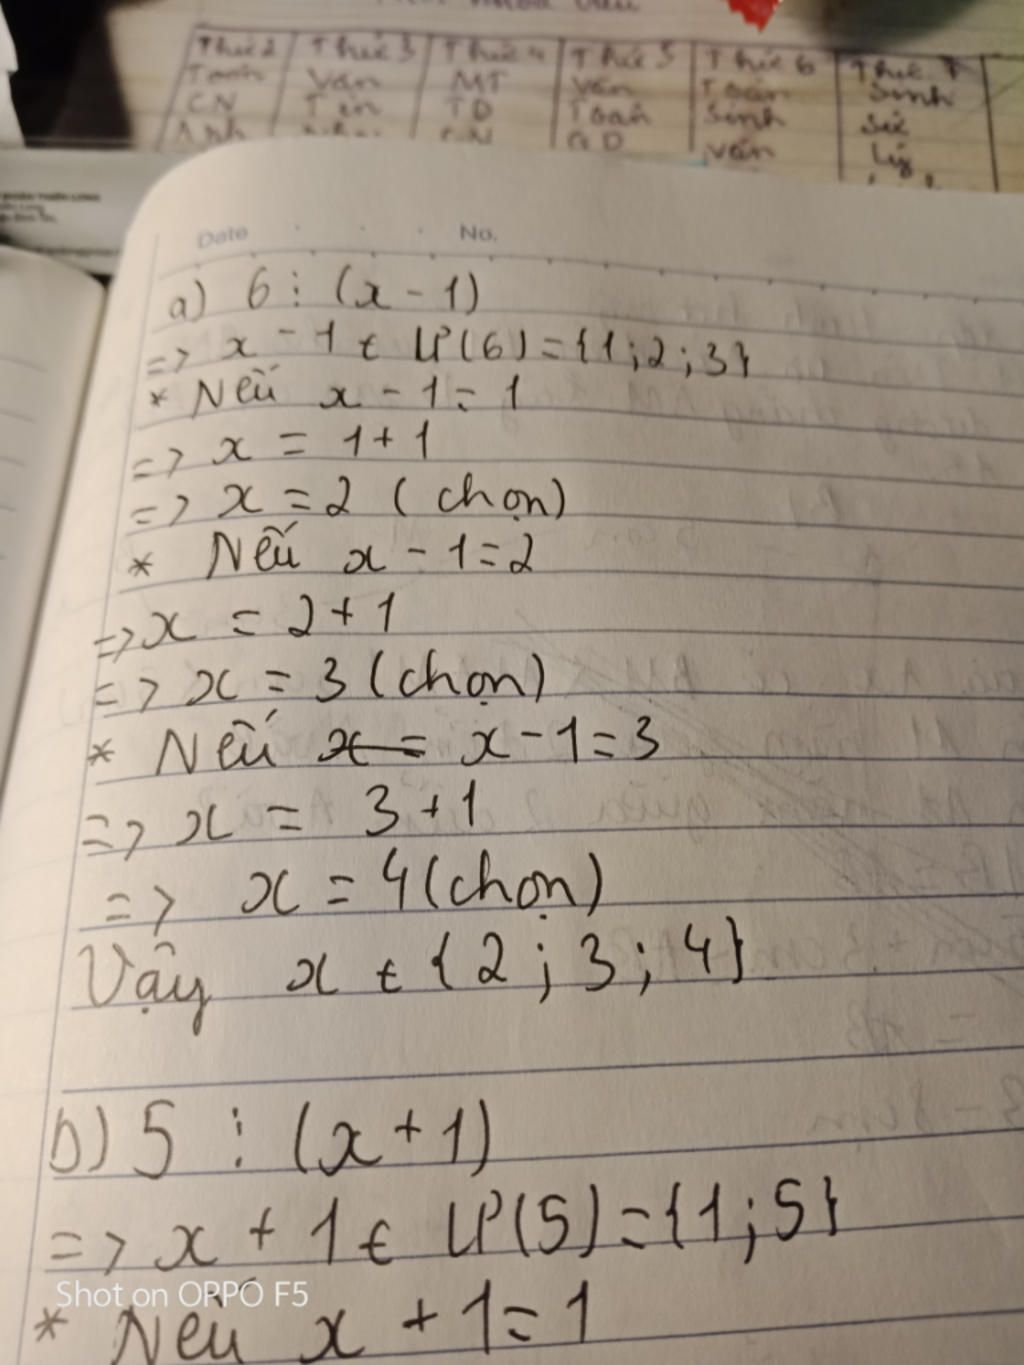 Thứ 2 Thứ 3 Thứ 4 Thứ 5 Thứ 6 Thứ 7
Toán Văn MT Văn Toán Sinh
CN Tin TD Toán Sinh Sử
Anh CN GD Văn Lý
Date No.
a) 6 ⋮ (x - 1)
=> x - 1 ∈ Ư(6) = {1; 2; 3}
* Nếu x - 1 = 1
=> x = 1 + 1
=> x = 2 (chọn)
* Nếu x - 1 = 2
=> x = 2 + 1
=> x = 3 (chọn)
* Nếu x = x - 1 = 3
=> x = 3 + 1
=> x = 4 (chọn)
Vậy x ∈ {2; 3; 4}
b) 5 ⋮ (x + 1)
=> x + 1 ∈ Ư(5) = {1; 5}
Shot on OPPO F5
* Nếu x + 1 = 1